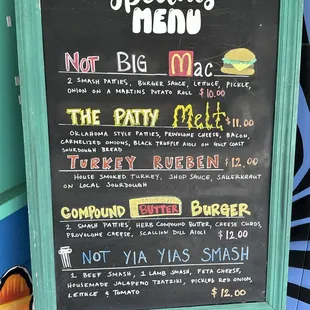 Specials
MENU
NOT BIG Mac
2 SMASH PATTIES, BURGER SAUCE, LETTUCE, PICKLE,
ONION ON A MARTINS POTATO ROLL $10.00
THE PATTY Melt $11.00
OKLAHOMA STYLE PATTIES, PROVOLONE CHEESE, BACON,
CARMELIZED ONIONS, BLACK TRUFFLE AIOLI ON GULF COAST
SOURDOUGH BREAD
TURKEY RUEBEN $12.00
HOUSE SMOKED TURKEY, SHOP SAUCE, SAUERKRAUT
ON LOCAL SOURDOUGH
COMPOUND BUTTER BURGER
2 SMASH PATTIES, HERB COMPOUND BUTTER, CHEESE CURDS,
PROVOLONE CHEESE, SCALLION DILL AIOLI $12.00
NOT YIA YIAS SMASH
1 BEEF SMASH, 1 LAMB SMASH, FETA CHEESE,
HOUSEMADE JALAPENO TZATZIKI, PICKLED RED ONION,
LETTUCE & TOMATO $12.00